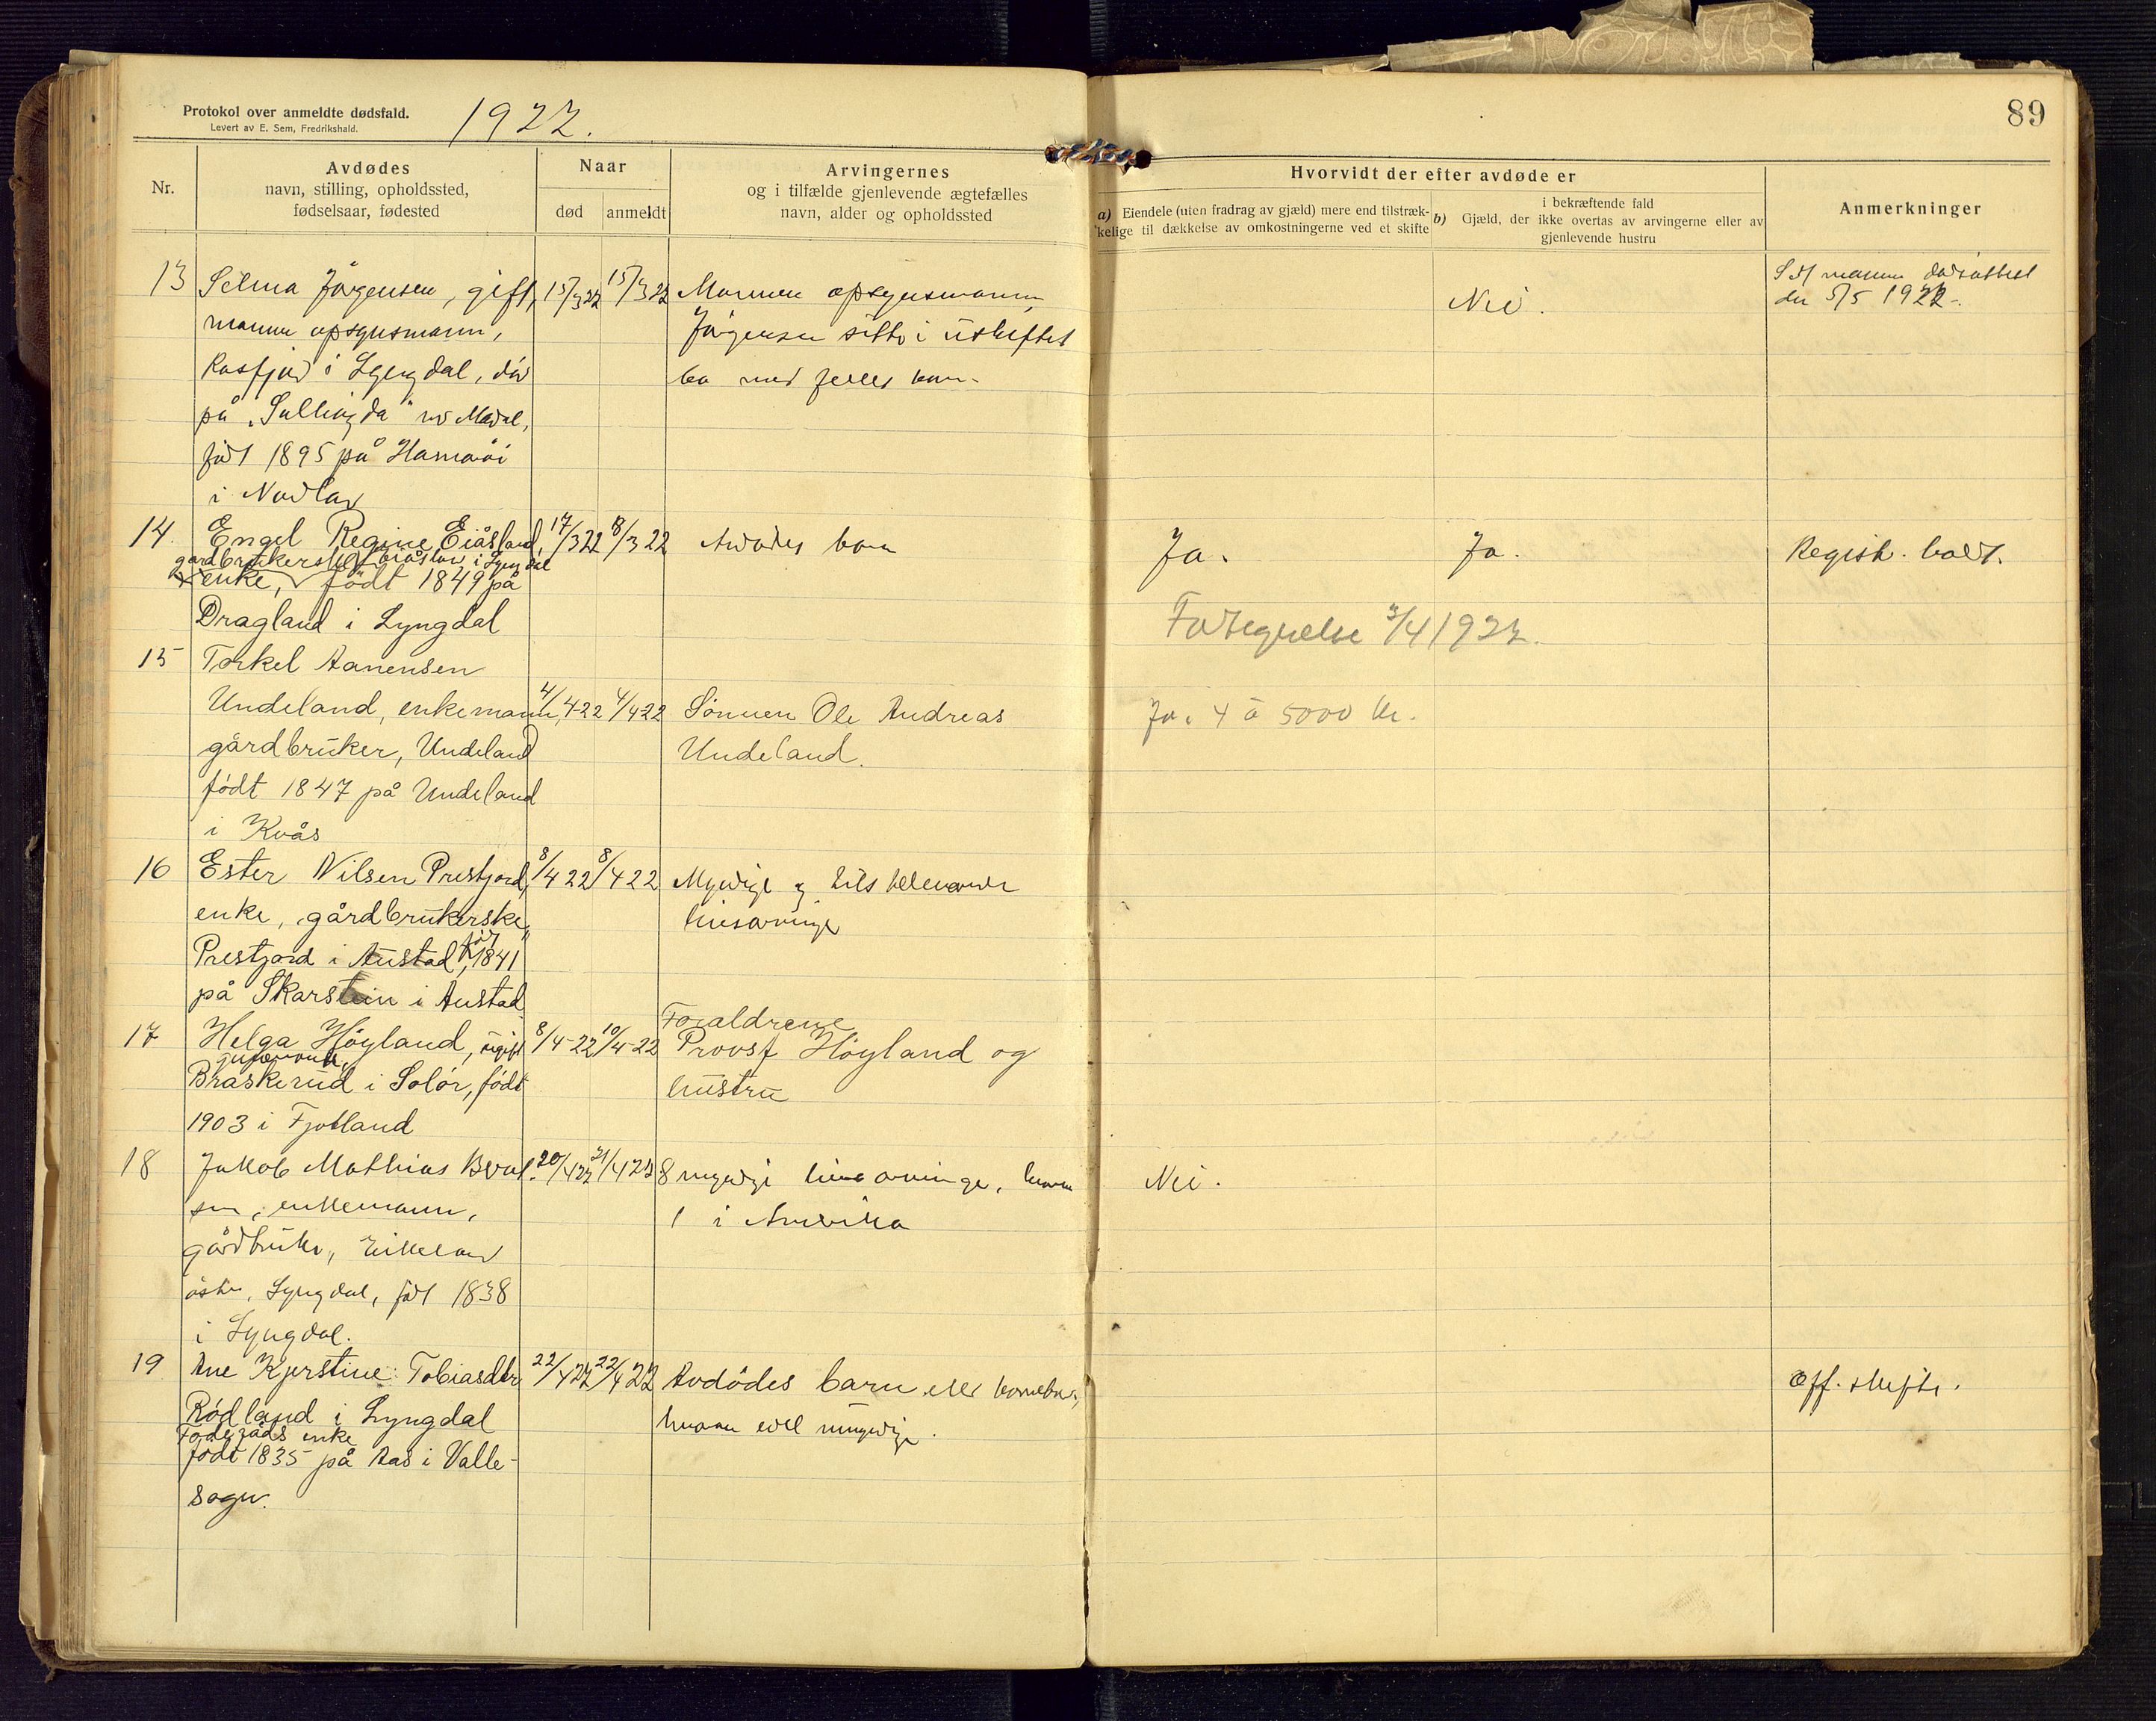 Protokol over anmeldte dødsfald.
Levert av E. Sem, Fredrikshald.
1922.
89
Nr.
Avdødes
navn, stilling, opholdssted,
fødselsaar, fødested
Naar
død
anmeldt
Arvingernes
og i tilfælde gjenlevende ægtefælles
navn, alder og opholdssted
Hvorvidt der efter avdøde er
a) Eiendele (uten fradrag av gjæld) mere end tilstræk-
kelige til dækkelse av omkostningerne ved et skifte
i bekræftende fald
b) Gjæld, der ikke overtas av arvingerne eller av
gjenlevende hustru
Anmerkninger
13
Selma Jørgensen, gift,
mannen opsynsmann,
Rosfjord i Lyngdal, død
på
født 1895 på Hamarøi
i Nordland
15/3 22
15/3 22
Mannen opsynsmann
Jørgensen sitter i uskiftet
bo med felles barn.
Nei.
den 5/5 1922.
14.
Engel Regine Eiåsland,
gårdbrukerske Eiåsland i Lyngdal
enke, født 1849 på
Dragland i Lyngdal
17/3 22
18/3 22
Avdødes barn
Ja.
Ja.
Registr. holdt.
Forsegnelse 3/4 1922.
15
Torkel Aanensen
Undeland, enkemann,
gårdbruker, Undeland
født 1847 på Undeland
i Kvås
4/4-22
4/4-22
Sønnen Ole Andreas
Undeland.
Ja. 4 à 5000 kr.
16
Ester Nilsen Prestjord,
enke, gårdbrukerske,
Prestjord i Austad, født 1841
på Skarstein i Austad
8/4 22
8/4 22
Myndige og tilstedeværende
livsarvinger
17
Helga Höyland, ugift
Braskerud i Solör, född
1903 i Fjotland
8/4-22
10/4-22
Foraldrene
Provst Höyland og
hustru
18
Jakob Mathias Bernt-
sen, enkemann,
gårdbruker, Eikeland
østre, Lyngdal, født 1838
i Lyngdal.
20/4 22
21/4 22
8 myndige livsarvinger, hvorav
1 i Amerika
Nei.
19
Ane Kjerstine Tobiasdtr
Rödland i Lyngdal
Föderåds enke
födt 1835 på Aas i Valle-
Sogn.
22/4 22
22/4 22
Avdödes barn eller barnebarn,
hvorav endel umyndige.
Off. skifte.